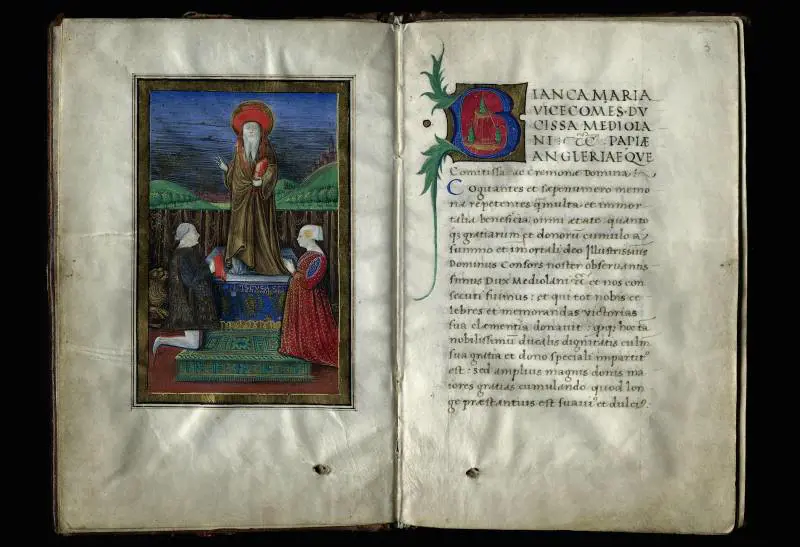 3
BIANCA MARIA
VICECOMES·DV
CISSA MEDIOLA
NI PAPIÆ
ANGLERIAEQVE
Comitissa ac Cremonæ Domina
Cogitantes et sæpenumero memo
ria repetentes multa et immor
talia beneficia omni ætate quanto
gratiarum et donorū cumulo a
summo et imortali deo Illustrissius
Dominus Consors noster observantis
simus Dux Mediolani et nos con
secuti fuimus: et qui tot nobis ce
lebres et memorandas victorias
sua clementia donavit
nobilissimū ducalis dignitatis culm
sua gratia et dono speciali impartit
est: sed amplius magnis donis ma
iores gratias cumulando quod lon
ge præstantius est suavi et dulci